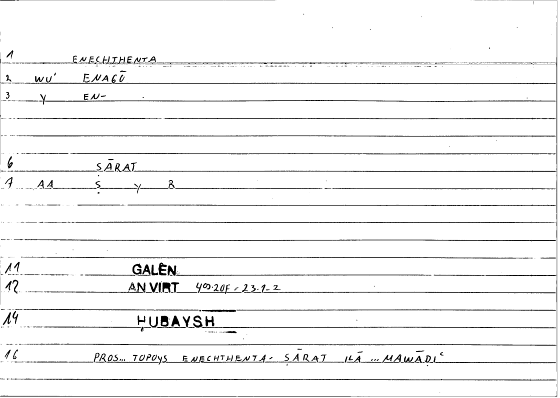 1 ENECHTHENTA
2 WU' ENAGŪ
3 Y EN-
6 ṢĀRAT
7 AA Ṣ Y R
11 GALĒN
12 AN VIRT 409.20F - 23.1-2
14 ḤUBAYSH
16 PROS... TOPOYS ENECHTHENTA - ṢĀRAT ILĀ ... MAWĀḌIʿ